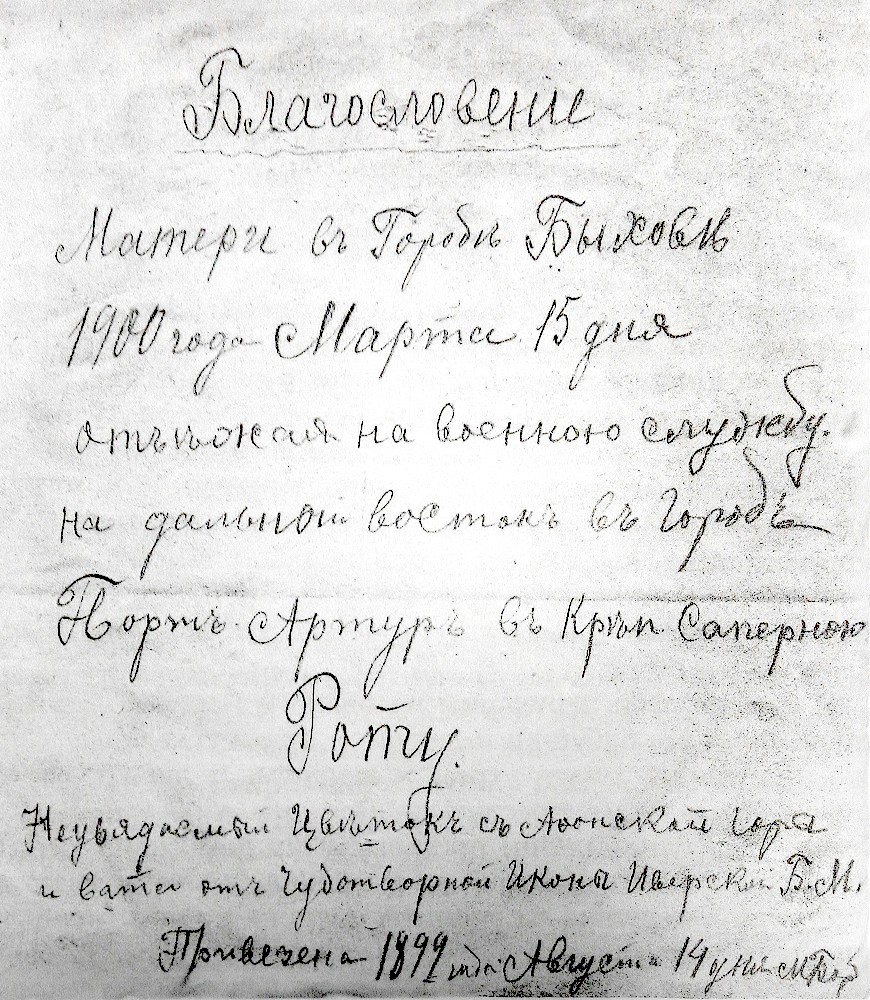 Благословенiе
Матери въ Городѣ Быховѣ
1900 года Марта 15 дня
отъѣжая на военною службу.
на дальной востокъ въ Городъ
Портъ Артуръ въ Крѣп Саперною
Роту.
Неувядаемый Цвѣтокъ съ Афонской Горы
и вата отъ Чудотворной Иконы Иверской Б. М.
Привезена 1899 года Августа 14 дня